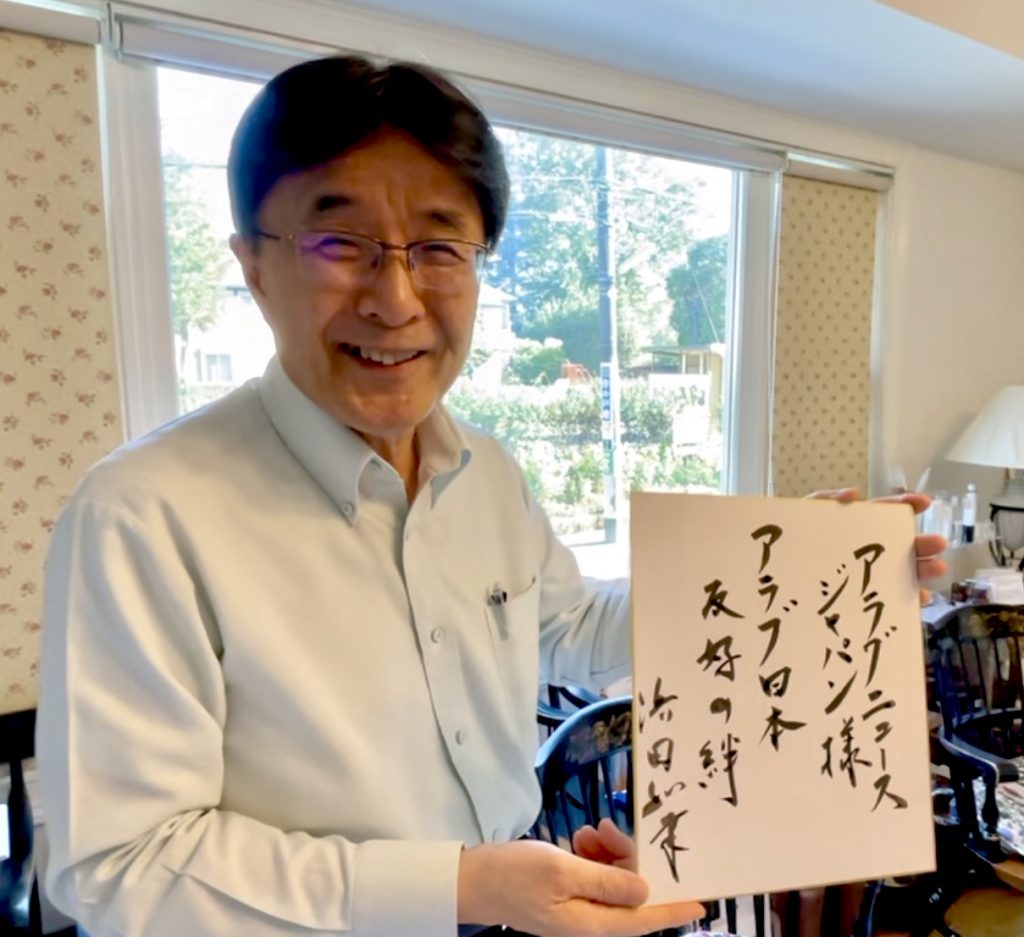 アラブニュース
ジャパン様
アラブ日本
友好の絆